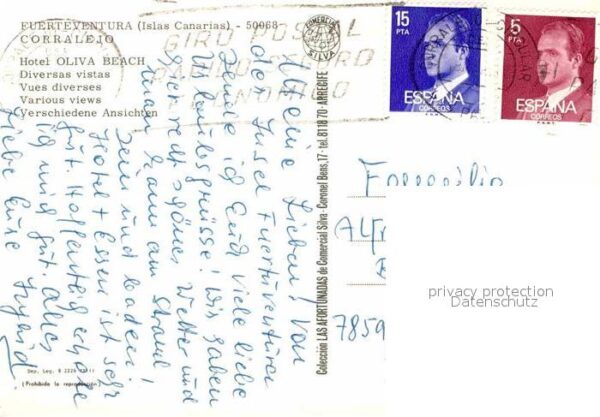 FUERTEVENTURA (Islas Canarias) - 50068
CORRALEJO
Hotel OLIVA BEACH
Diversas vistas
Vues diverses
Various views
Verschiedene Ansichten
COMERCIAL
SILVA
GIRO POSTAL
RAPIDO SEGURO
ECONOMICO
15
PTA
ESPAÑA
CORREOS
5
PTA
ESPAÑA
CORREOS
Meine Lieben! Von
der Insel Fuerteventura
sende ich Euch viele liebe
Urlaubsgrüsse! Wir haben
schönes Wetter und
man kann am Strand
sein und baden!
Hotel + Essen ist sehr
gut. Hoffentlich geht es
Euch gut. Alles
Liebe Eure Ingrid.
Colección LAS AFORTUNADAS de Comercial Silva - Coronel Bens, 17 - tel. 81 18 70 - ARRECIFE
7859
privacy protection
Datenschutz
Dep. Leg. B 2226
(Prohibida la reproducción)